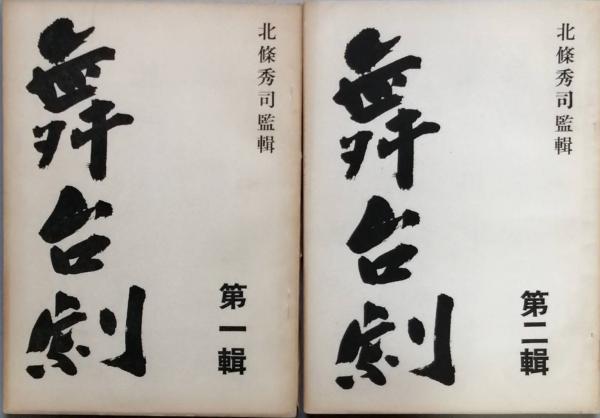 北條秀司監輯
舞台劇
第一輯
北條秀司監輯
舞台劇
第二輯